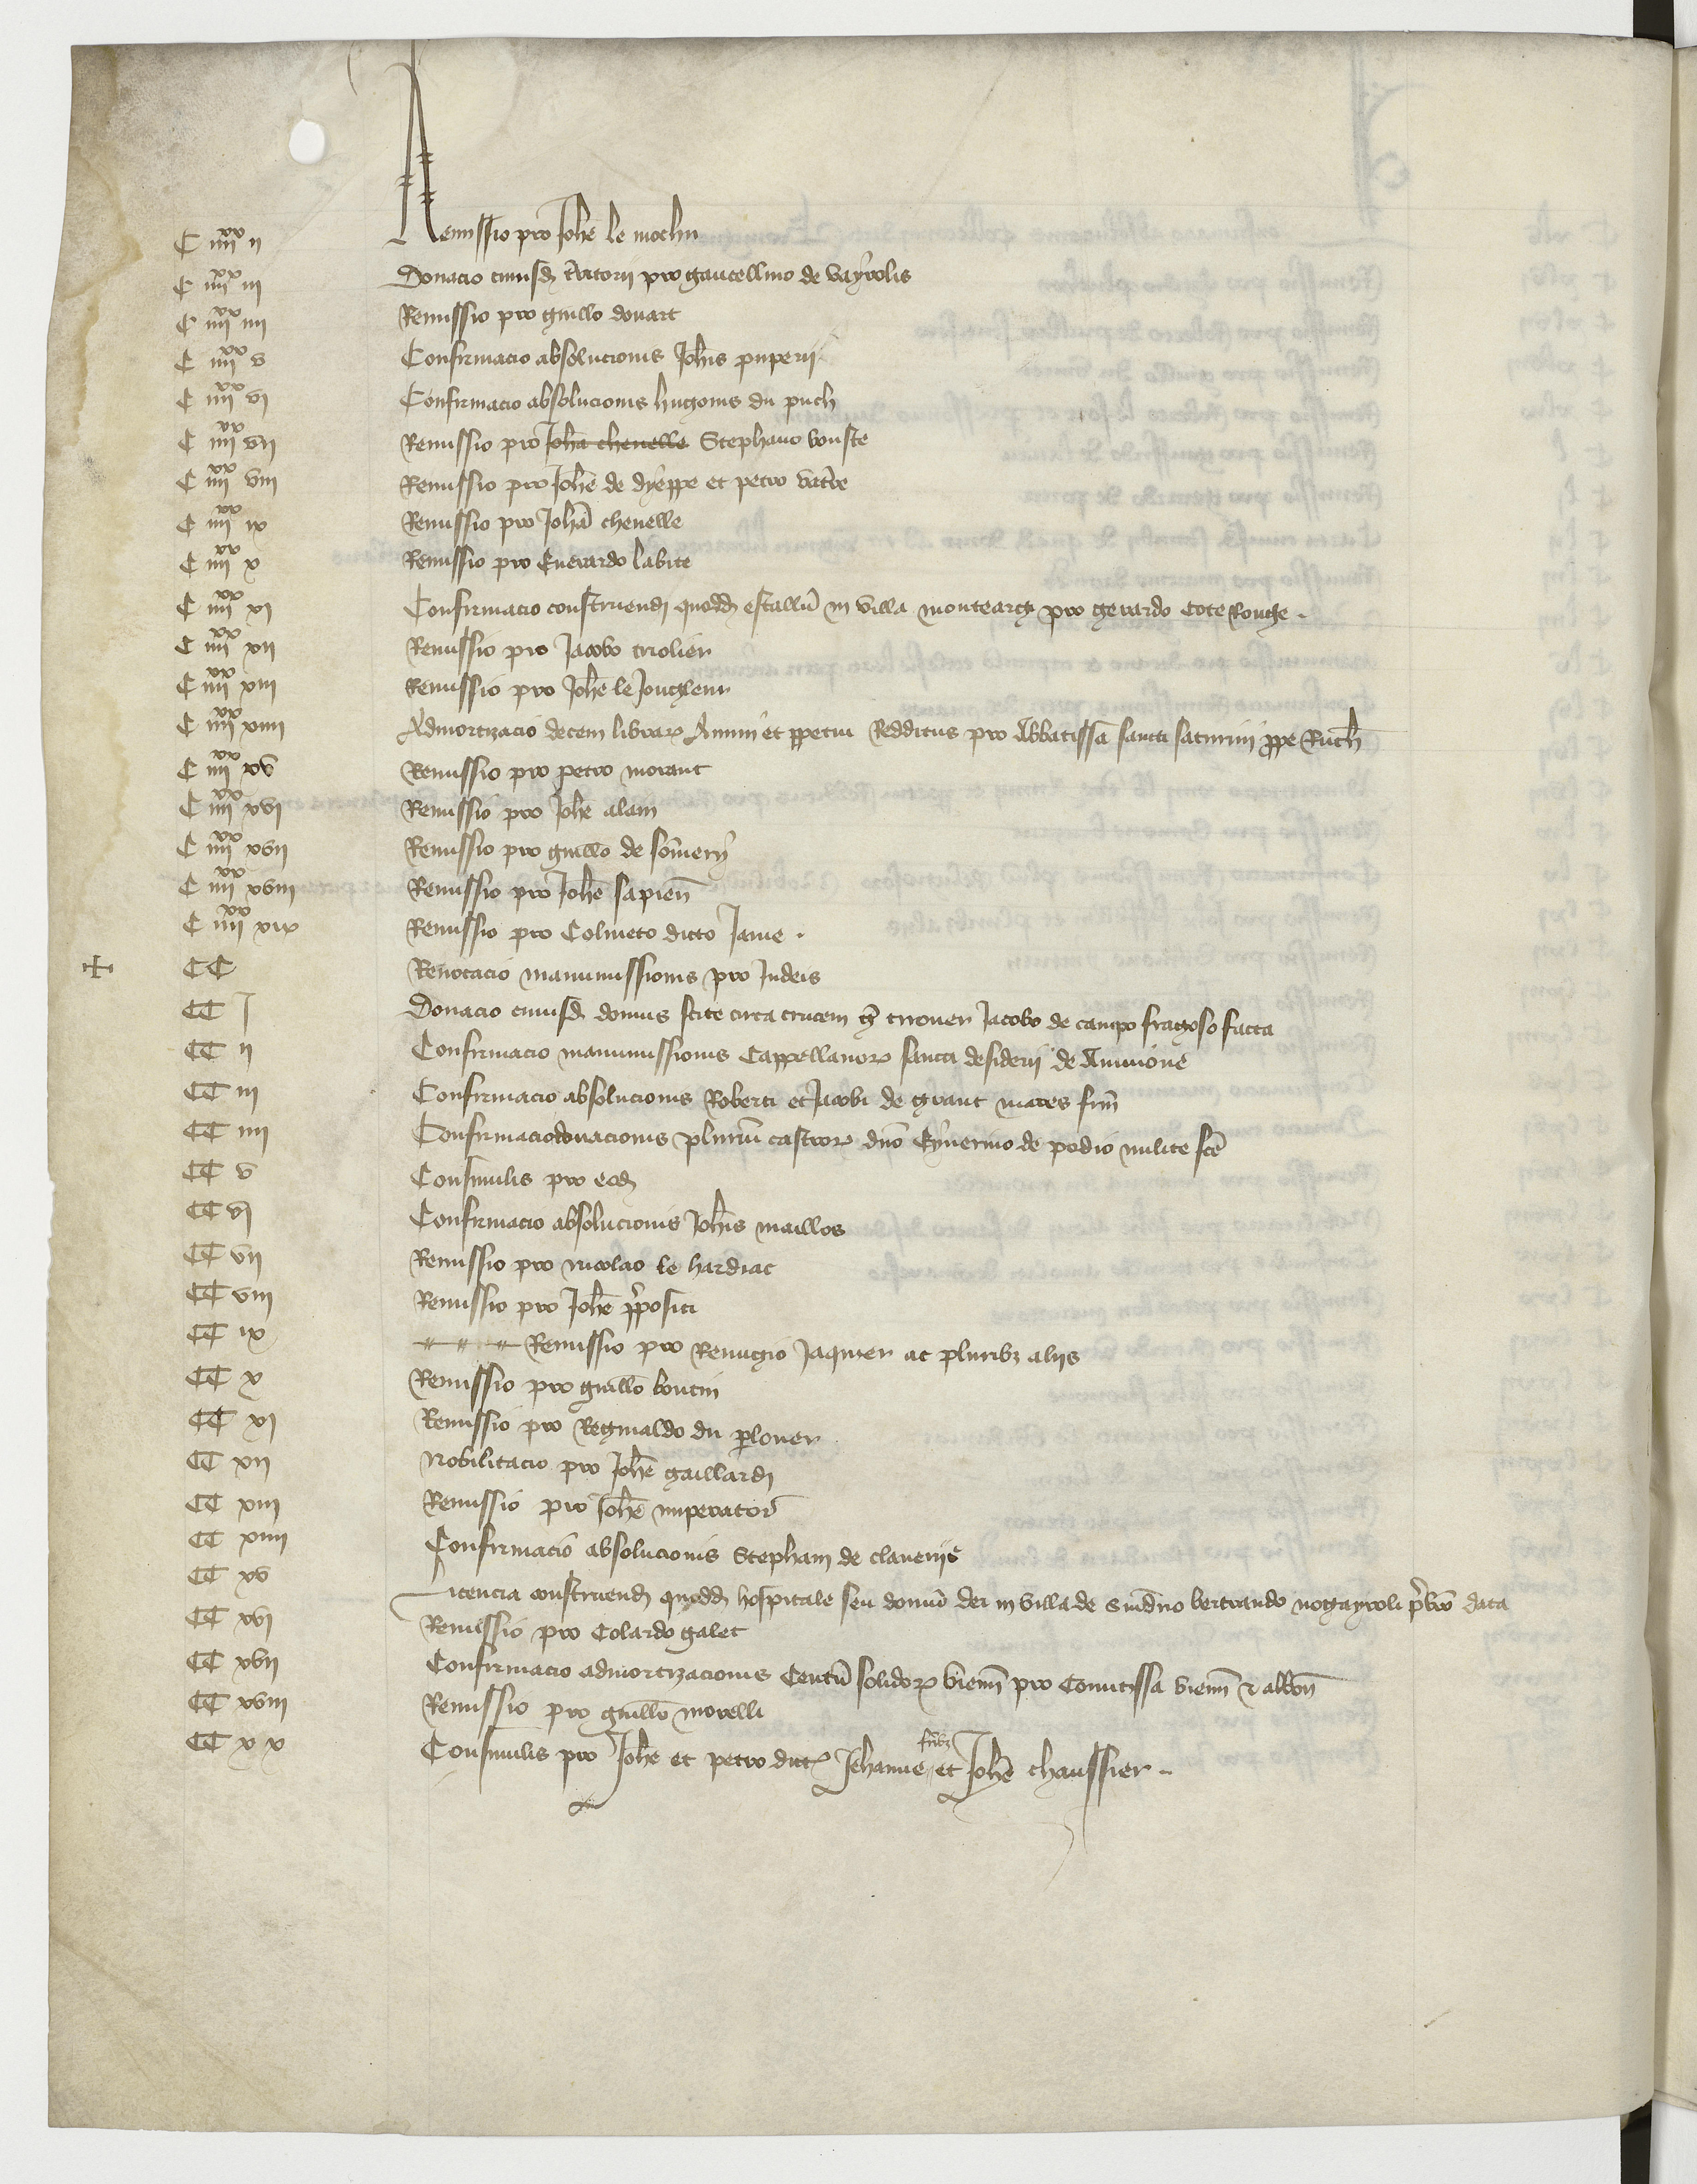 C iiii xx ii Remissio pro Johe le moelin
C iiii xx iii Donacio cuiusd t'ritorii pro gaucellino de vayrolis
C iiii xx iiii Remissio pro guillo douart
C iiii xx v Confirmacio absolucionis Johis puperii
C iiii xx vi Confirmacio absolucionis hugonis du puch
C iiii xx vii Remissio pro Joha chenelle Stephano vouste
C iiii xx viii Remissio pro Johe de dyeppe et petro vatre
C iiii xx ix Remissio pro Joha chenelle
C iiii xx x Remissio pro Euerardo labite
C iiii xx xi Confirmacio construendi quodd estallu in villa montearg pro gerardo Cote Rouge .
C iiii xx xii Remissio pro Jacobo triolier
C iiii xx xiii Remissio pro Johe le Jougleur
C iiii xx xiiii Admortizacio decem librar Annui et ppetui Redditus pro Abbatissa sancti saturnini ppe Ruch
C iiii xx xv Remissio pro petro morant
C iiii xx xvi Remissio pro Johe alain
C iiii xx xvii Remissio pro guillo de somery
C iiii xx xviii Remissio pro Johe sapien
C iiii xx xix Remissio pro Colineto dicto Jame .
+ CC Reuocacio manumissionis pro Judeis
CC I Donacio cuiusd domus scite circa crucem tirouer Jacobo de campo fragoso facta
CC ii Confirmacio manumissionis Cappellanor sancti desiderii de Auinione
CC iii Confirmacio absolucionis Roberti et Jacobi de grant mares frm
CC iiii Confirmacio donacionis plurium castror dno Eymerino de podio milite fce
CC v Consimilis pro eod
CC vi Confirmacio absolucionis Johis maillos
CC vii Remissio pro nicolao le hardiac
CC viii Remissio pro Johe ppositi
CC ix Remissio pro Remigio Jaquier ac pluribz aliis
CC x Remissio pro guillo boutin
CC xi Remissio pro Reginaldo du plouer
CC xii Nobilitacio pro Johe gaillardi
CC xiii Remissio pro Johe imperator
CC xiiii Confirmacio absolucionis Stephani de claueriis
CC xv Licencia construendi quodd hospitale seu domu dei in villa de bertrando nogayroli data
CC xvi Remissio pro Colardo galet
CC xvii Confirmacio admortizacionis Centu solidor vienn pro Comitissa vienn et albon
CC xviii Remissio pro guillo morelli
CC xx Consimilis pro Johe et petro dict Jehanne fribz et Johe chaussier .